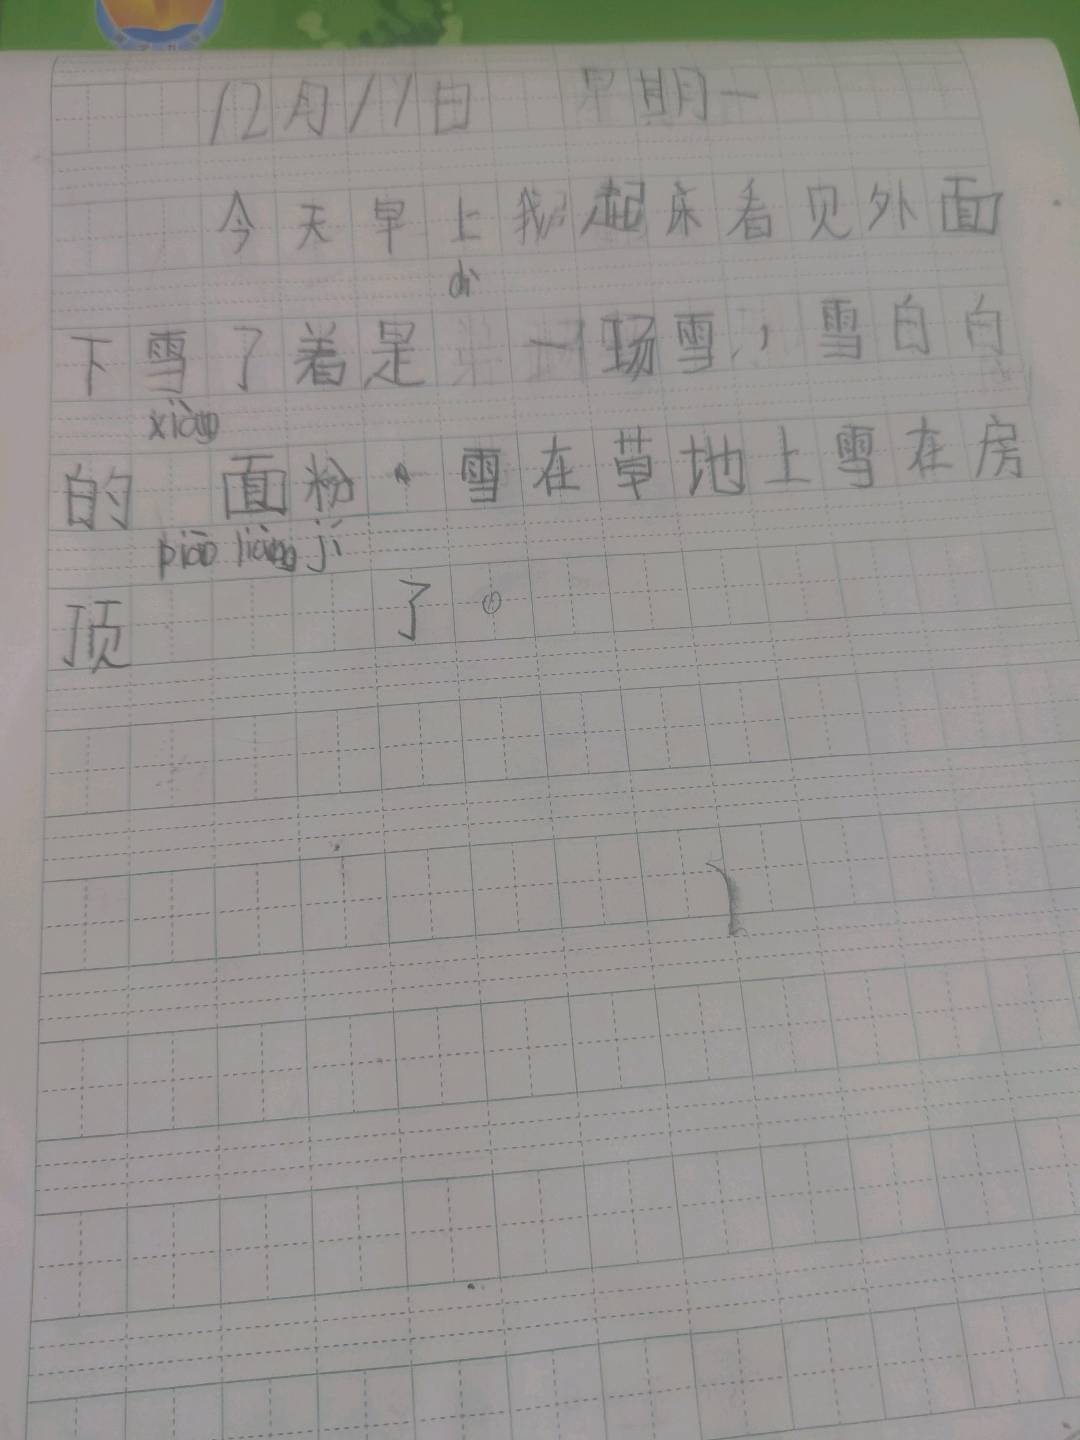 12月17日 早期一
今天早上我起床看见外面
dì
下雪了着是 一场雪，雪白白
xiàng
的 面粉。雪在草地上雪在房
piào liàng jí
顶 了。